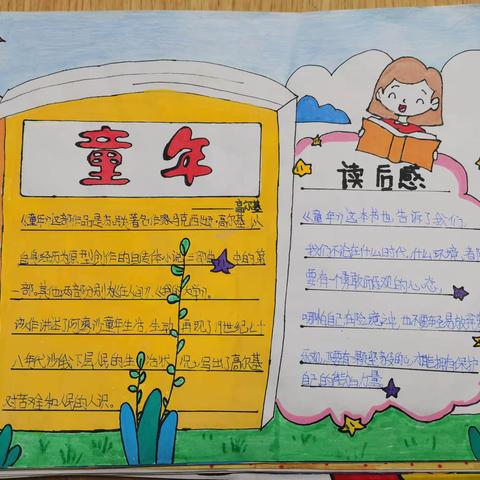 童年
高尔基
《童年》这部作品是苏联著名作家马克西姆·高尔基以
自身经历为原型创作的自传体小说三部曲中的第
一部。其他两部分别为《在人间》、《我的大学》。
该作讲述了阿廖沙童年生活,生动再现了19世纪七十
八十年代沙俄下层人民的生活状况,写出了高尔基
对苦难和人民的人识。
读后感
《童年》这本书也告诉了我们,
我们不论在什么时代,什么环境,都
要有一个勇敢而乐观的心态,
哪怕自己在险境之中,也不要轻易放弃
只有一颗坚强的心才能拥有保护
自己的能力与力量